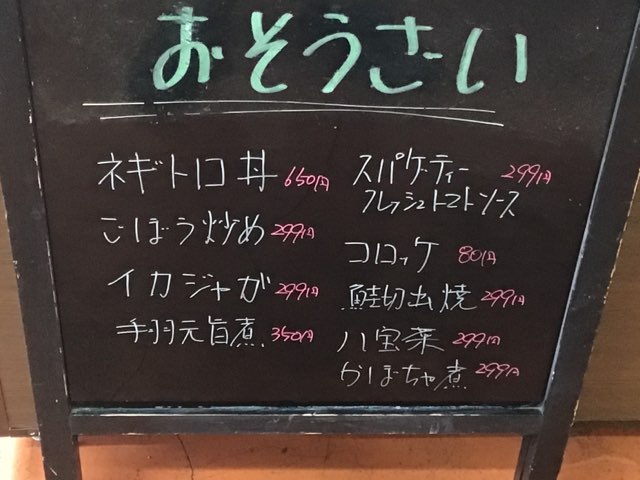 おそうさい
ネギトロ丼 650円
ごぼう炒め 299円
イカジャガ 299円
手羽元旨煮 350円
スパゲーティー 299円
フレッシュトマトソース
コロッケ 80円
鮭切出焼 299円
八宝菜 299円
かぼちゃ煮 299円